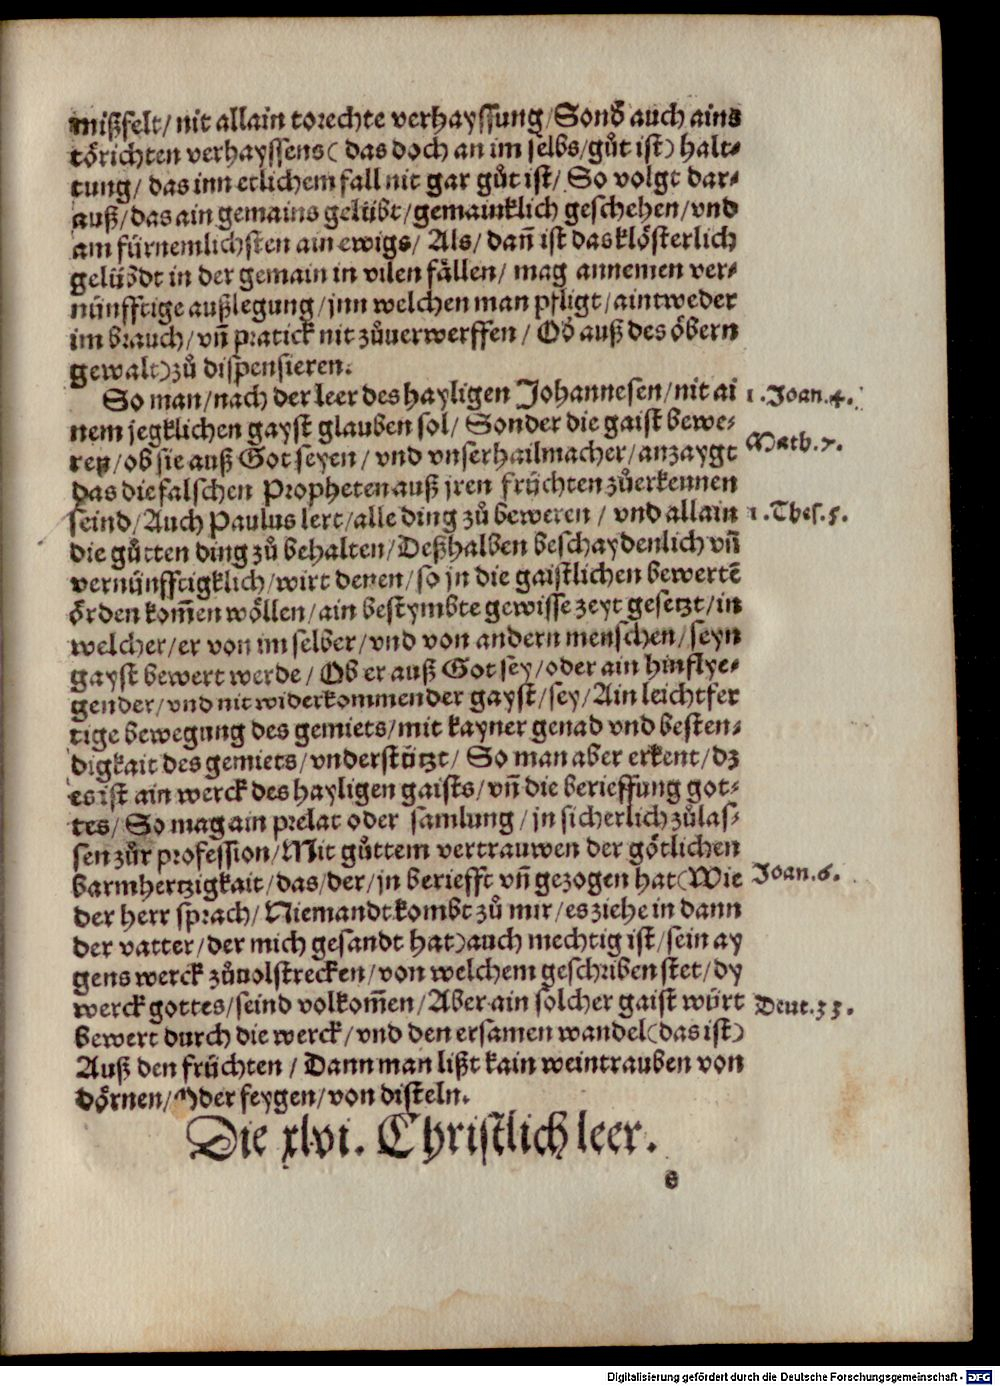 mißfelt/ nit allain torechte verhayssung/ Sond̕ auch ains
törichten verhayssens( das doch an im selbs/ gůt ist) halt-
tung/ das inn etlichem fall nit gar gůt ist/ So volgt dar-
auß/ das ain gemains gelübt/ gemainklich geschehen/ vnd
am fürnemlichsten ain ewigs/ Als/ dañ ist das klösterlich
gelübdt in der gemain in vilen fällen/ mag annemen ver-
nünfftige außlegung/ jnn welchen man pfligt/ aintweder
im brauch/ vñ pratick nit zůuerwerffen/ Ob auß des öbern
gewalt) zů dispensieren.
So man/ nach der leer des hayligen Johannesen/ nit ai
1. Joan. 4.
nem jegklichen gayst glauben sol/ Sonder die gaist bewe-
ren/ ob sie auß Got seyen/ vnd vnser hailmacher/ anzaygt
Math. 7.
das die falschen Propheten auß jren früchten zůerkennen
seind/ Auch Paulus lert/ alle ding zů beweren/ vnd allain
1. Thes. 5.
die gůtten ding zů behalten/ Deßhalben beschaydenlich vñ
vernünfftigklich/ wirt denen/ so jn die gaistlichen bewertẽ
örden kom̃en wöllen/ ain bestymbte gewisse zeyt gesetzt/ in
welcher/ er von im selber/ vnd von andern menschen/ seyn
gayst bewert werde/ Ob er auß Got sey/ oder ain hinflye-
gender/ vnd nit widerkommender gayst/ sey/ Ain leichtfer
tige bewegung des gemiets/ mit kayner genad vnd besten-
digkait des gemiets/ vnderstützt/ So man aber erkent/ dz
es ist ain werck des hayligen gaists/ vñ die berieffung got-
tes/ So mag ain prelat oder samlung/ jn sicherlich zůlas-
sen zůr profession/ Mit gůttem vertrauwen der götlichen
barmhertzigkait/ das/ der/ jn beriefft vñ gezogen hat(Wie
Joan. 6.
der herr sprach/ Niemandt kombt zů mir/ es ziehe in dann
der vatter/ der mich gesandt hat) auch mechtig ist/ sein ay
gens werck zůuolstrecken/ von welchem geschriben stet/ dy
werck gottes/ seind volkom̃en/ Aber ain solcher gaist würt
Deut. 33.
bewert durch die werck/ vnd den ersamen wandel(das ist)
Auß den früchten/ Dann man lißt kain weintrauben von
dörnen/ Oder feygen/ von disteln.
Die xlvi. Christlich leer.
e
Digitalisierung gefördert durch die Deutsche Forschungsgemeinschaft - DFG